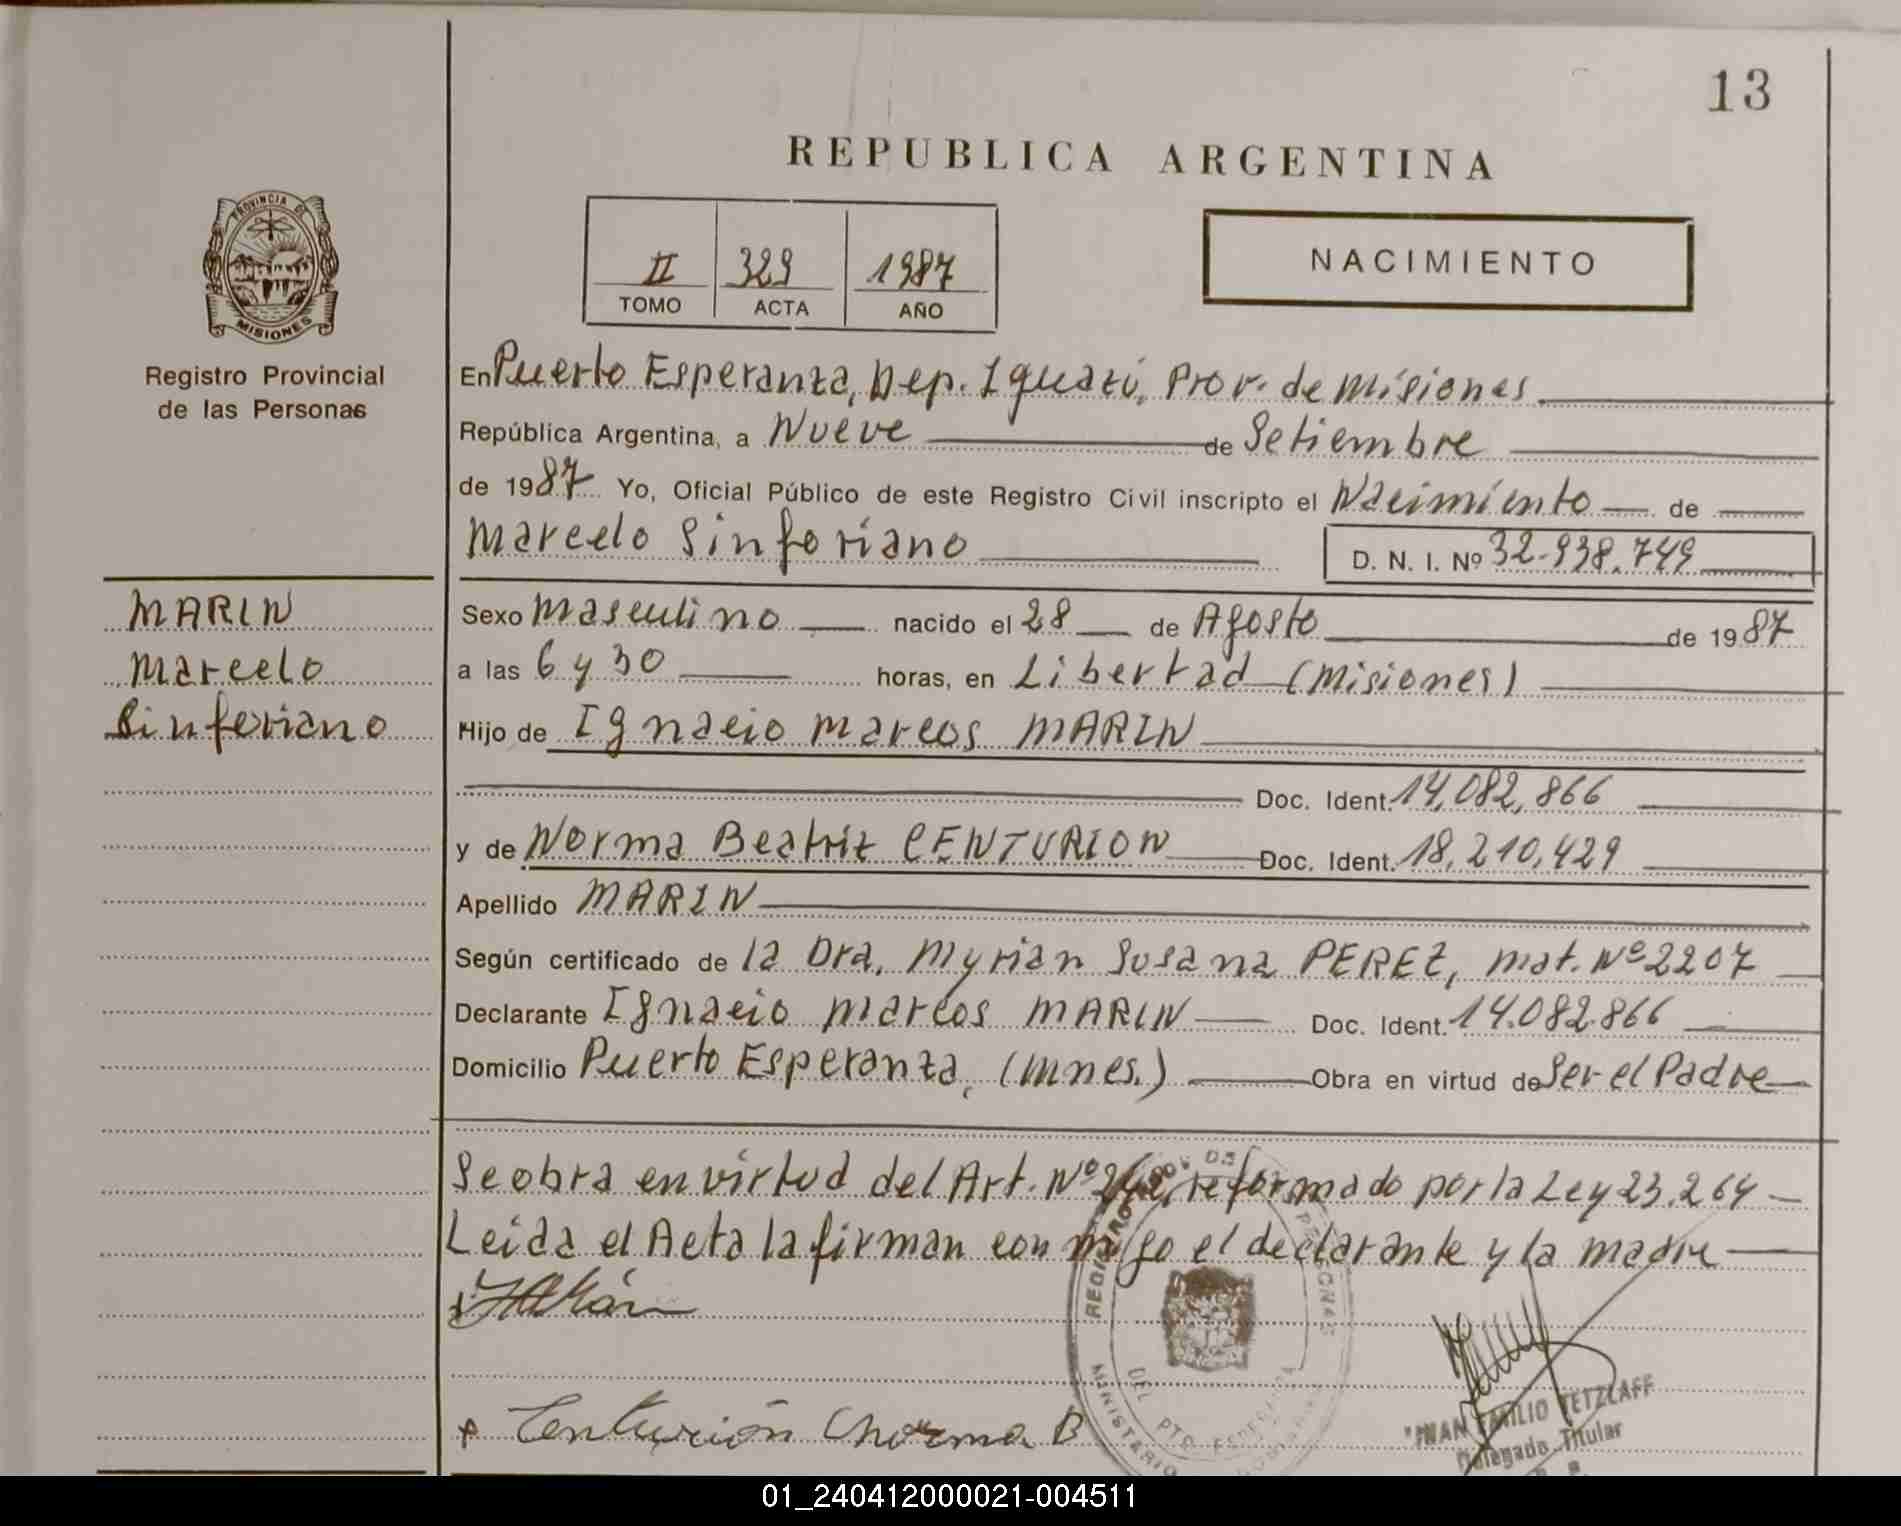 13
REPUBLICA ARGENTINA
PROVINCIA DE
MISIONES
Registro Provincial
de las Personas
II 329 1987
TOMO ACTA AÑO
NACIMIENTO
En Puerto Esperanza, Dep. Iguazú, Prov. de Misiones
República Argentina, a Nueve de Setiembre
de 1987 Yo, Oficial Público de este Registro Civil inscripto el Nacimiento de
Marcelo Sinforiano D. N. I. Nº 32.938.749
MARIN
Marcelo
Sinforiano
Sexo Masculino nacido el 28 de Agosto de 1987
a las 6 y 30 horas, en Libertad (Misiones)
Hijo de Ignacio Marcos MARIN
Doc. Ident. 14,082,866
y de Norma Beatriz CENTURION Doc. Ident. 18,210,429
Apellido MARIN
Según certificado de la Dra. Myrian Susana PEREZ, mat. Nº 2207
Declarante Ignacio Marcos MARIN Doc. Ident. 14.082.866
Domicilio Puerto Esperanza, (Mnes.) Obra en virtud de Ser el Padre
Se obra en virtud del Art. Nº reformado por la Ley 23.264
Leida el Acta la firman con migo el declarante y la madre
REGISTRO PERSONAS
MINISTERIO
DEL PTO. ESPERANZA
Centurión Norma B
EMILIO TETZLAFF
Delegado Titular
01_240412000021-004511